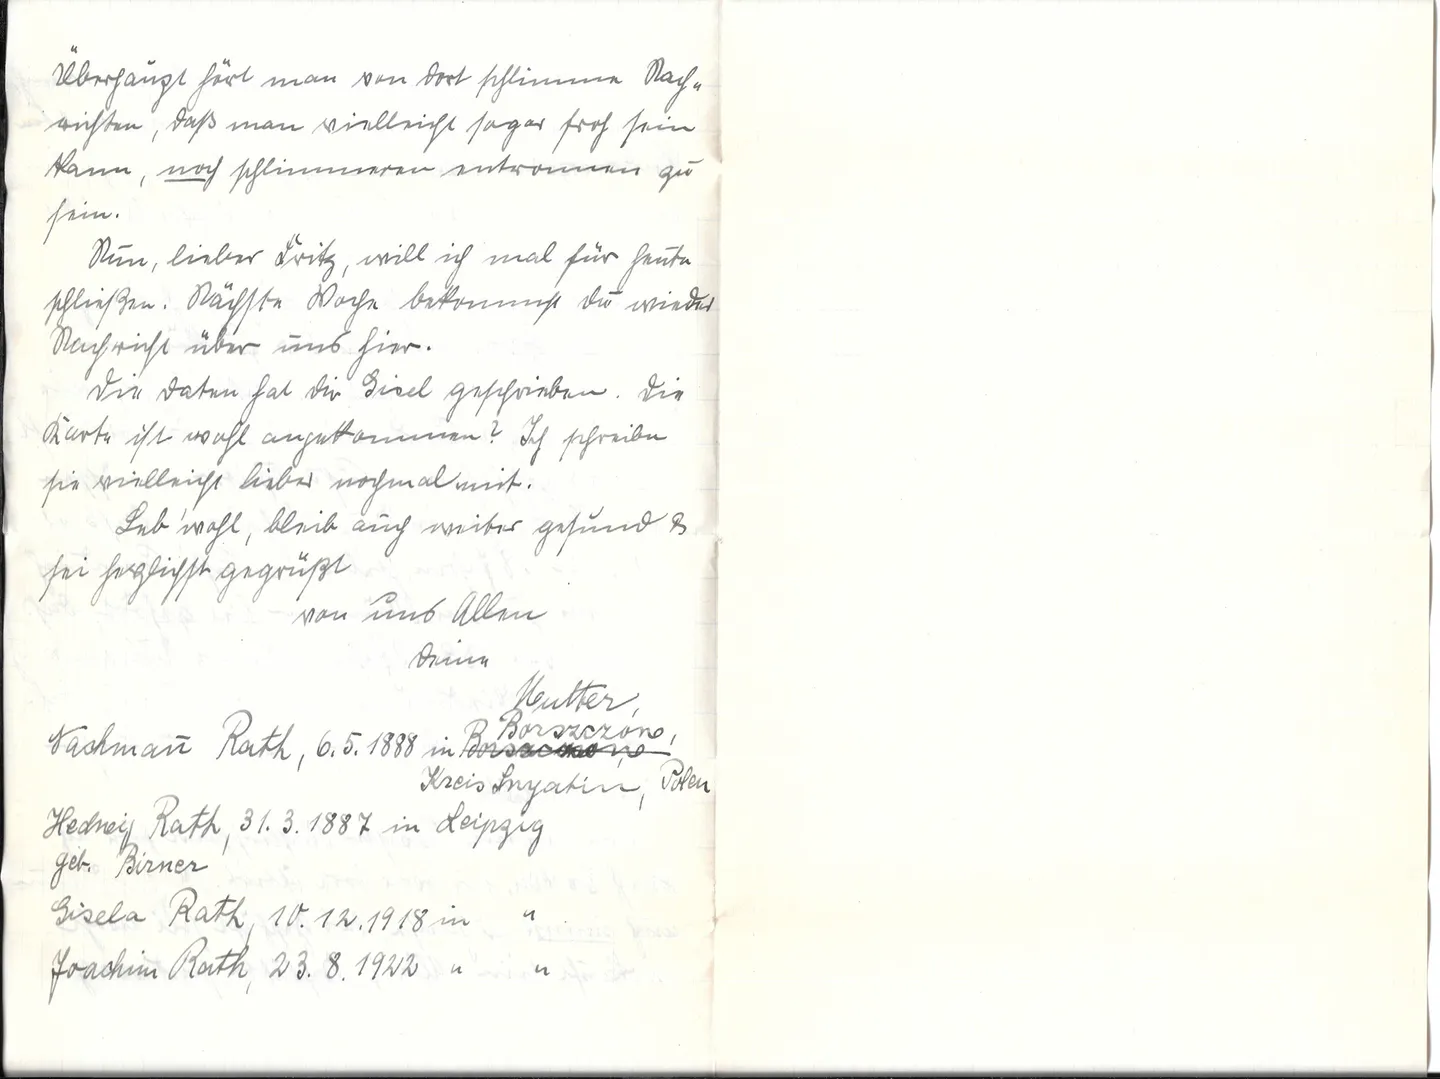 Überhaupt hört man von dort schlimme Nach-
richten, daß man vielleicht sogar froh sein
kann, noch schlimmeren entronnen zu
sein.
Nun, lieber Fritz, will ich mal für heute
schließen. Nächste Woche bekommst du wieder
Nachricht über uns hier.
Die Daten hat dir Gisel geschrieben. Die
Karte ist wohl angekommen? Ich schreibe
sie vielleicht lieber nochmal mit.
Leb' wohl, bleib auch weiter gesund &
sei herzlichst gegrüßt
von uns Allen
deine
Mutter,
Nachman̄ Rath, 6.5.1888 in Borszczów,
Kreis Snyatin, Polen
Hedwig Rath, 31.3.1887 in Leipzig
geb. Birner
Gisela Rath, 10.12.1918 in "
Joachim Rath, 23.8.1922 " "